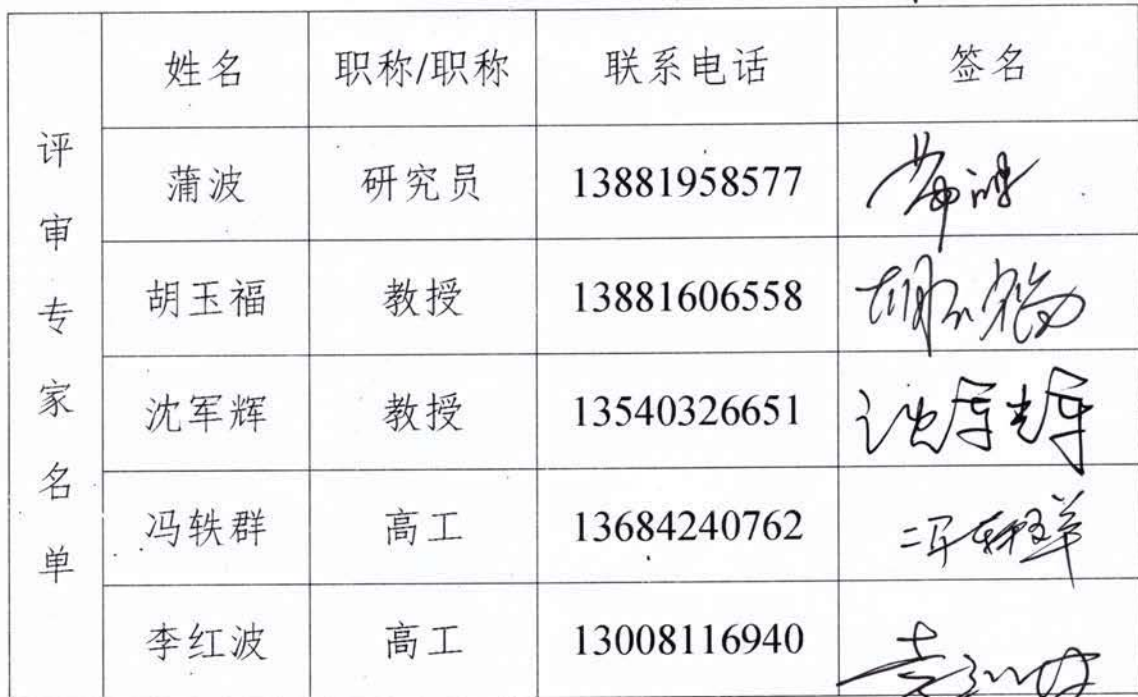 评审专家名单
姓名 职称/职称 联系电话 签名
蒲波 研究员 13881958577 蒲波
胡玉福 教授 13881606558 胡玉福
沈军辉 教授 13540326651 沈军辉
冯轶群 高工 13684240762 冯轶群
李红波 高工 13008116940